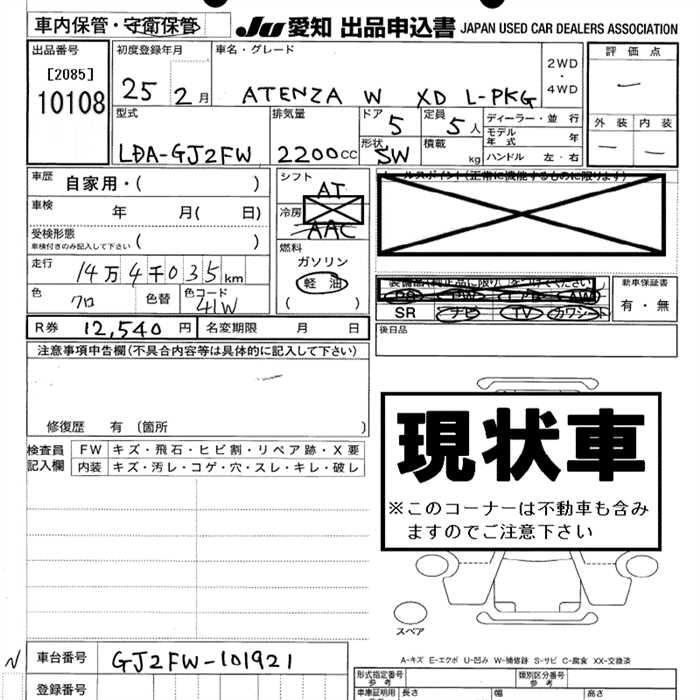 車内保管・守衛保管 JU 愛知 出品申込書 JAPAN USED CAR DEALERS ASSOCIATION
出品番号 初度登録年月 車名・グレード 評価点
[2085]
10108 25 2月 ATENZA W XD L-PKG 2WD・4WD
外装 内装
型式 排気量 ドア 定員 ディーラー・並行
LDA-GJ2FW 2200cc 5 5人 モデル年式 年
形状 SW 積載 kg ハンドル 左・右
車歴 自家用・( ) シフト AT
車検 年 月( 日) 冷房 AAC
受検形態
車検付きのみ記入して下さい ( ) 燃料
ガソリン
走行 14万4千035km 軽油
( )
色 クロ 色替 色コード 41W
新車保証書
有・無
SR ナビ TV カワシート
R券 12,540円 名変期限 月 日 後日品
注意事項申告欄(不具合内容等は具体的に記入して下さい)
修復歴 有 (箇所 )
検査員記入欄 FW キズ・飛石・ヒビ割・リペア跡・X要
内装 キズ・汚レ・コゲ・穴・スレ・キレ・破レ
現状車
※このコーナーは不動車も含み
ますのでご注意下さい
スペア
A-キズ E-エクボ U-凹み W-補修跡 S-サビ C-腐食 XX-交換済
N 車台番号 GJ2FW-101921
登録番号
形式指定番号 参考 類別区分番号 参考
車庫証明用 長さ 幅 高さ